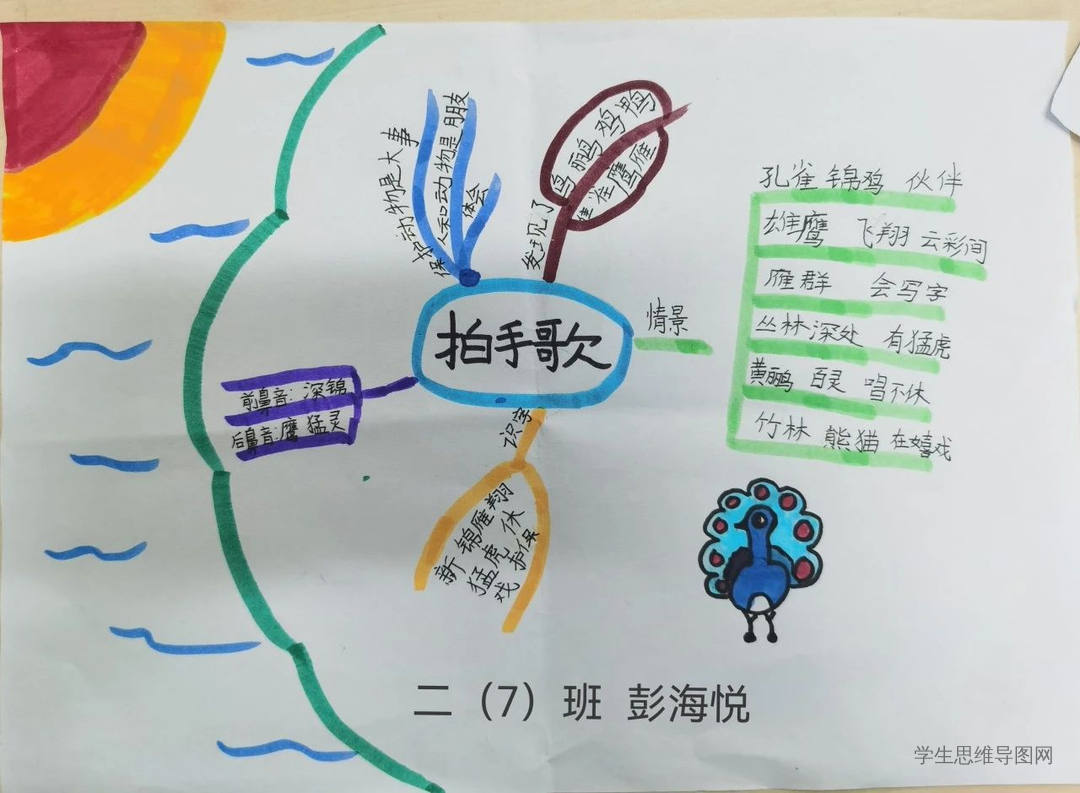 拍手歌
保护动物是大事
人和动物是朋友
体会
发现了
鸟 鹂 鸡 鸭
隹 雀 鹰 雁
情景
孔雀 锦鸡 伙伴
雄鹰 飞翔 云彩间
雁群 会写字
丛林深处 有猛虎
黄鹂 百灵 唱不休
竹林 熊猫 在嬉戏
前鼻音: 深锦
后鼻音: 鹰 猛灵
识字
新 锦雁翔
猛虎 休
戏 护保
二（7）班 彭海悦
学生思维导图网